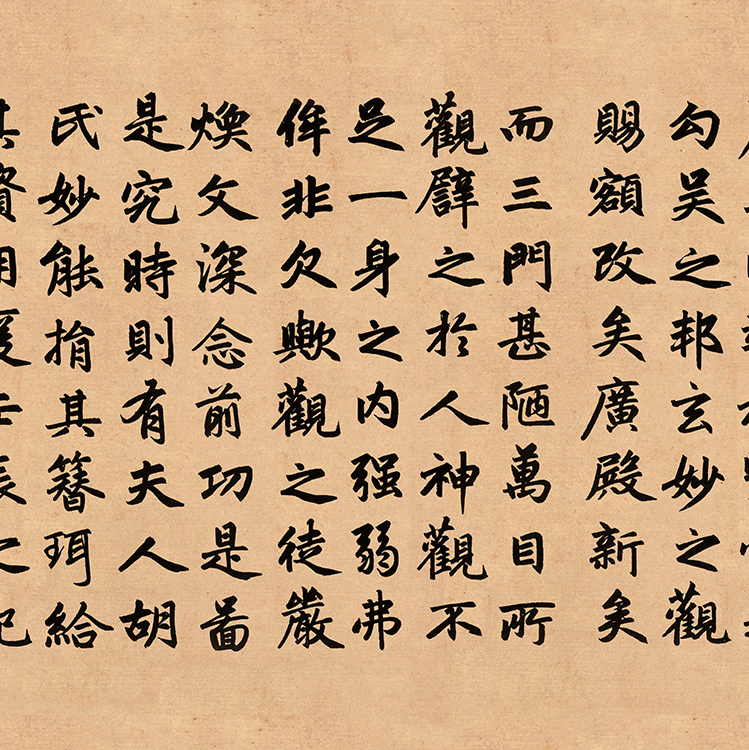 勾吳之邦玄妙之觀
賜額改矣廣殿新矣
而三門甚陋萬目所
觀譬之於人神觀不
足一身之内强弱弗
侔非欠歟觀之徒嚴
煥文深念前功是啚
是究時則有夫人胡
氏妙能捐其簪珥給
其資用